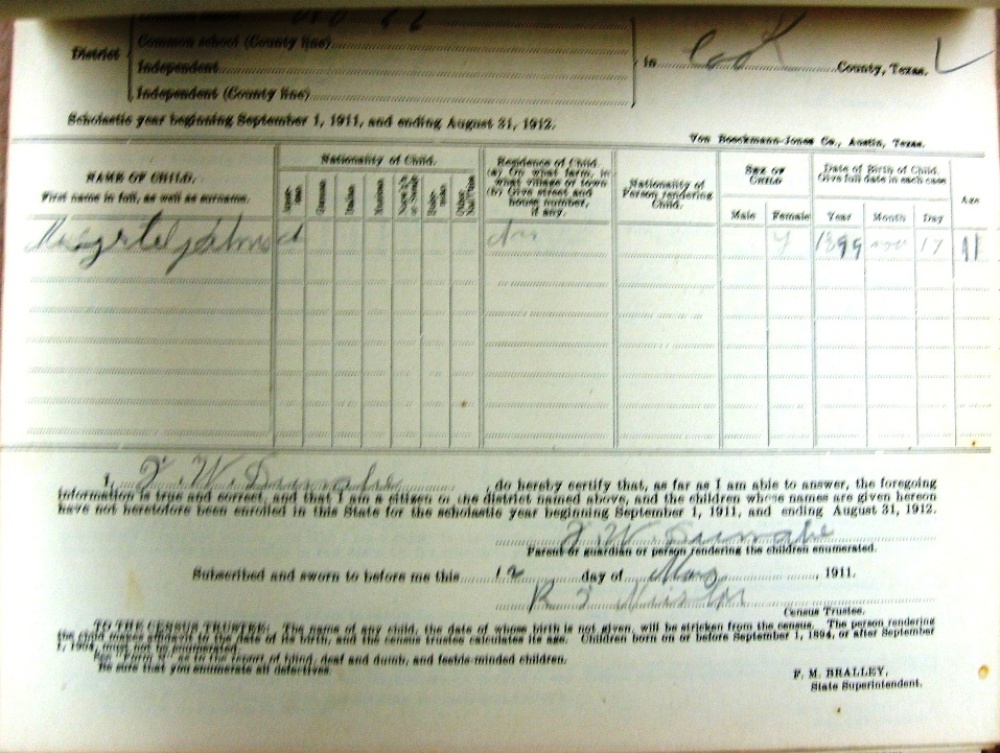 Common school (County line)
District Independent in Cook County, Texas.
Independent (County line)
Scholastic year beginning September 1, 1911, and ending August 31, 1912.
Von Boeckmann-Jones Co., Austin, Texas.
NAME OF CHILD.
First name in full, as well as surname.
Nationality of Child.
German
Italian
Mexican
Residence of Child.
(a) On what farm, in
what village or town
(b) Give street and
house number,
if any.
Nationality of
Person rendering
Child.
SEX OF
CHILD
Male Female
Date of Birth of Child.
Give full date in each case
Year Month Day
Age
1899 17 11
I, W. , do hereby certify that, as far as I am able to answer, the foregoing
information is true and correct, and that I am a citizen of the district named above, and the children whose names are given hereon
have not heretofore been enrolled in this State for the scholastic year beginning September 1, 1911, and ending August 31, 1912.
W.
Parent or guardian or person rendering the children enumerated.
Subscribed and sworn to before me this 12 day of , 1911.
R
Census Trustee.
TO THE CENSUS TRUSTEE: The name of any child, the date of whose birth is not given, will be stricken from the census. The person rendering
the child makes affidavit to the date of its birth, and the census trustee calculates its age. Children born on or before September 1, 1894, or after September
1, 1904, must not be enumerated.
See "Form W" as to the report of blind, deaf and dumb, and feeble-minded children.
Be sure that you enumerate all defectives.
F. M. BRALLEY,
State Superintendent.